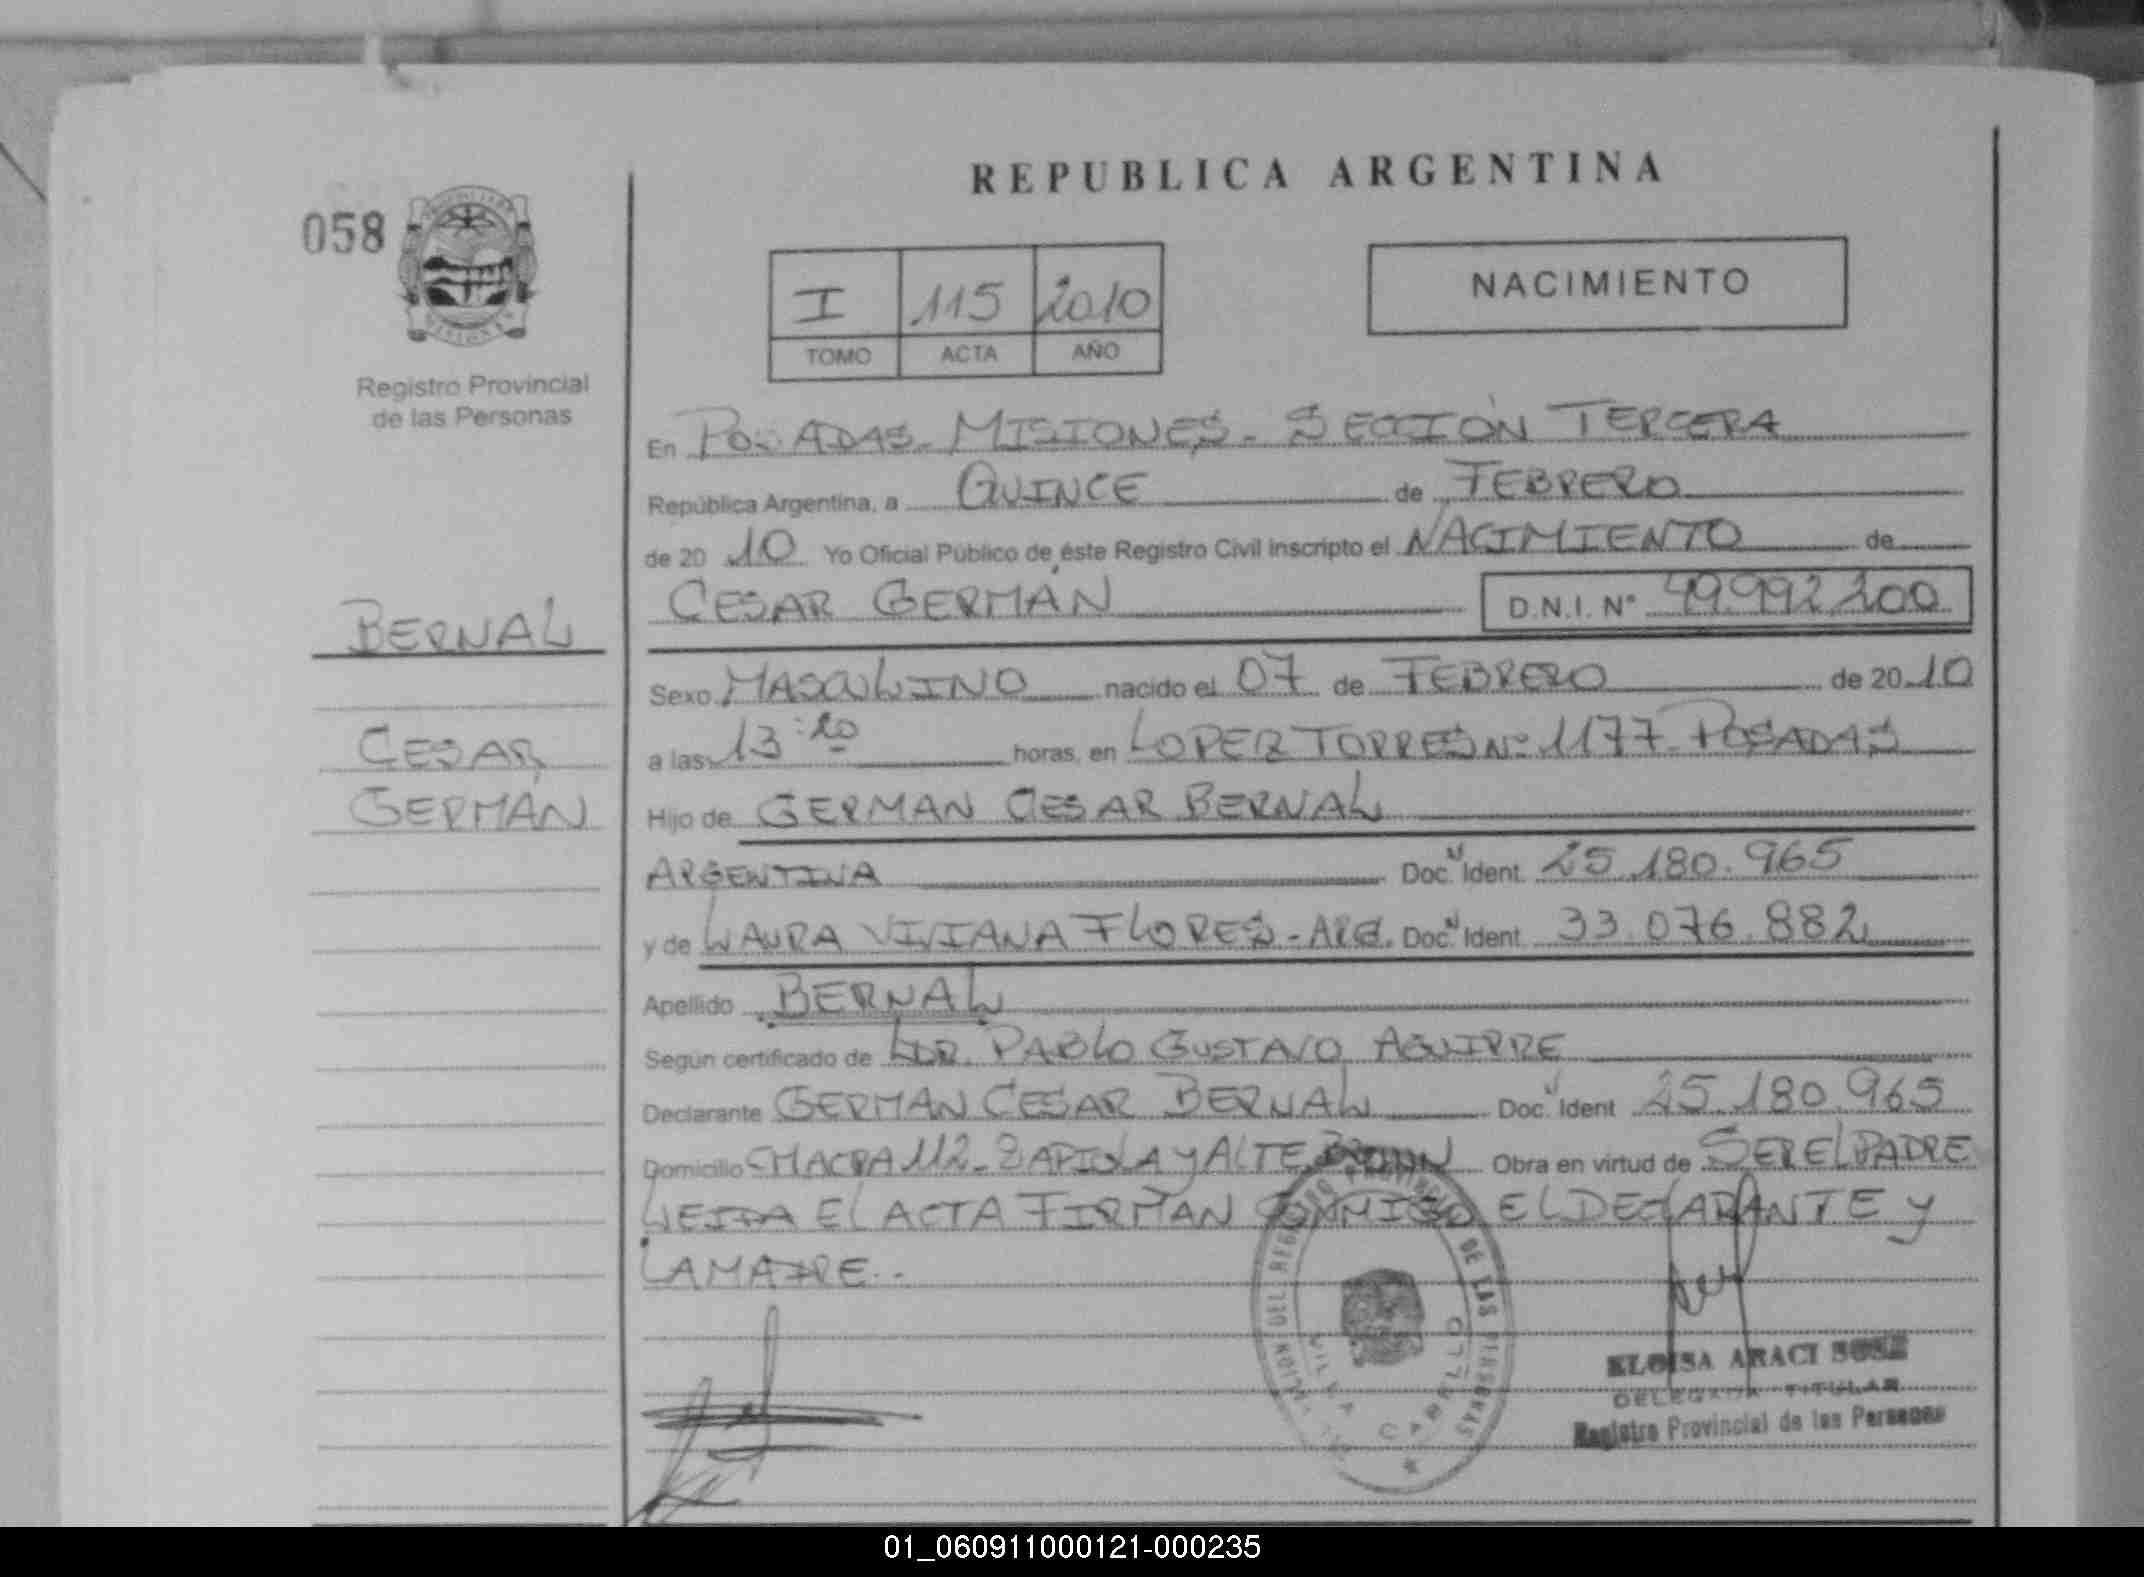 REPUBLICA ARGENTINA
058
NACIMIENTO
I 115 2010
TOMO ACTA AÑO
Registro Provincial
de las Personas
En POSADAS - MISIONES - SECCIÓN TERCERA
República Argentina, a QUINCE de FEBRERO
de 20 10 Yo Oficial Público de éste Registro Civil inscripto el NACIMIENTO de
CESAR GERMÁN D.N.I. Nº 49.992.200
BERNAL
Sexo MASCULINO nacido el 07 de FEBRERO de 20 10
CESAR
a las 13:20 horas, en LOPEZ TORRES Nº 1177 - POSADAS
GERMÁN
Hijo de GERMAN CESAR BERNAL
ARGENTINA Doc. Ident. 25.180.965
y de LAURA VIVIANA FLORES - ARG. Doc. Ident. 33.076.882
Apellido BERNAL
Según certificado de DR. PABLO GUSTAVO AGUIRRE
Declarante GERMAN CESAR BERNAL Doc. Ident 25.180.965
Domicilio CHACRA 112 - ZAPIOLA y ALTE BROWN Obra en virtud de SER EL PADRE
LEIDA EL ACTA FIRMAN CONMIGO EL DECLARANTE y
LA MADRE.-
DEL REGISTRO PROVINCIAL DE LAS PERSONAS
VILLA CABELLO
ELOISA ARACI
DELEGADA TITULAR
Registro Provincial de las Personas
01_060911000121-000235